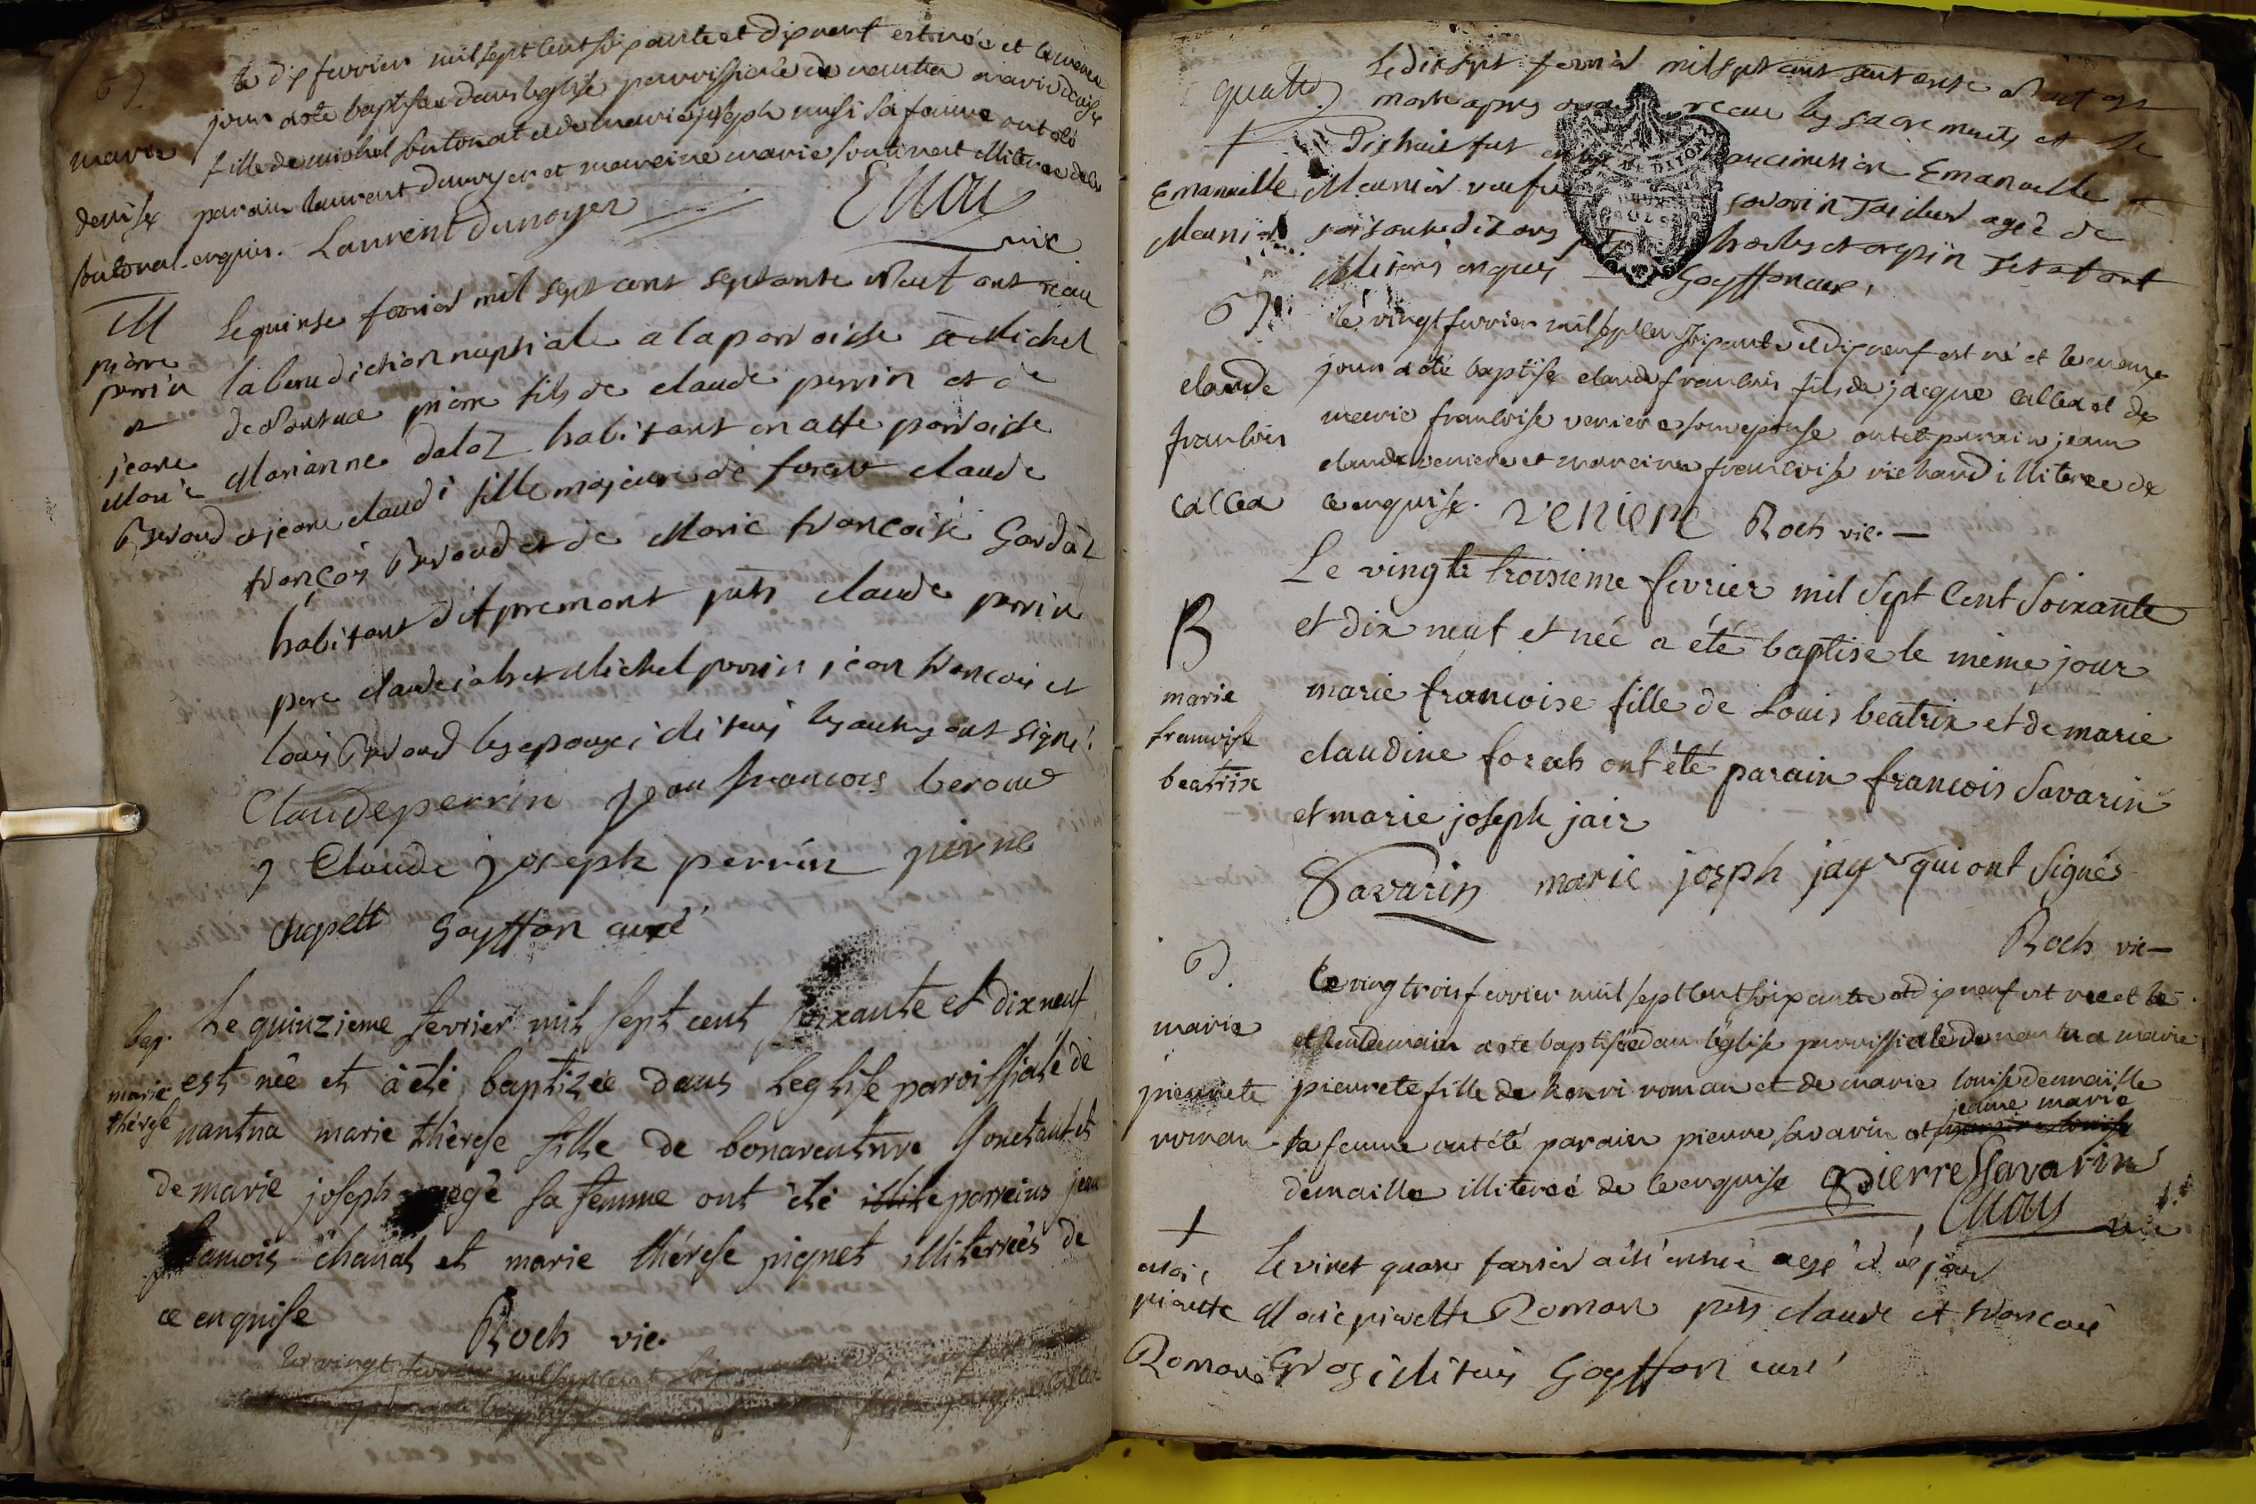 B.
marie
denise
soutonat
le dix fevrier mil sept cent soixante et dix neuf est née et le meme
jour a ete baptisée dans leglise parroissiale de nantua marie denise
fille de michel soutonat et de marie joseph musi sa femme ont été
parain laurent dunoyer et mareine marie soutonat illiterée de ce
enquis. Laurent dunoyer
vic
M
pierre
perrin
et
jeane
Marie
Beroud
Le quinse fevrier mil sept cent septante neuf ont recu
la benediction nuptiale a la paroisse St Michel
de Nantua pierre fils de claude perrin et de
Marianne daloz habitant en cette paroisse
et jeane claudi fille majeure de feu claude
françois Beroud et de Marie françoise Gardaz
habitant d'apremont pnts claude perrin
pere claude joseph et Michel perrin jean francois et
louis Beroud les epoux iliterés les autres ont signé.
Claude perrin jean francois beroud
Claude joseph perrin pierre
Chapell Goyffon curé
bap.
marie
thérese
Le quinzieme fevrier mil sept cent soixante et dix neuf
est née et à été baptizée dans leglise paroissiale de
nantua marie thérese fille de bonaventure Gonetant et
de marie joseph sa femme ont été illite parreins jean
francois chanal et marie thérese pignet illiterrés de
ce enquise
Roch vic.
Le vingt fevrier mil sept cent soix
quatto
+
Emanuelle
Meunier
Le dix sept fevrier mil sept cent septante neuf est
morte apres avoir recu les sacrements et le
dix huit fut Emanuelle
Meunier veufve savarin Taicheur agée de
soisante dix ans
iliterés enquis Goyffon curé,
B.
claude
francois
callea
le vingt fevrier mil sept cent soixante et dix neuf est né et le meme
jour a été baptisé claude francois fils de jacque callea et de
marie francoise veniere son epouse ont eté parain jean
claude veniere et mareine francoise richard illiteree de
ce enquise. Veniere Roch vic.
B
marie
francoise
beatrix
Le vingt troisieme fevrier mil sept cent soixante
et dix neuf et née a été baptise le même jour
marie francoise fille de Louis beatrix et de marie
claudine forets ont été parain francois Savarin
et marie joseph jair
Savarin marie joseph jay qui ont signés
Roch vic
B.
marie
pierrete
roman
le vingt trois fevrier mil sept cent soixante et dix neuf est née et le
et lendemain a ete baptisée dan leglise parroissiale de nantua marie
pierrete fille de henri roman et de marie louise demaille
sa femme ont été parain pierre savarin et marie louise jeane marie
demaille illiteréé de ce enquise Pierre Savarin
vic
+
Marie
pierette
Roman
Le vint quatre fevrier a été enterré agé d'un jour
Marie pierette Roman pnts claude et francois
Gros iliterés Goyffon curé